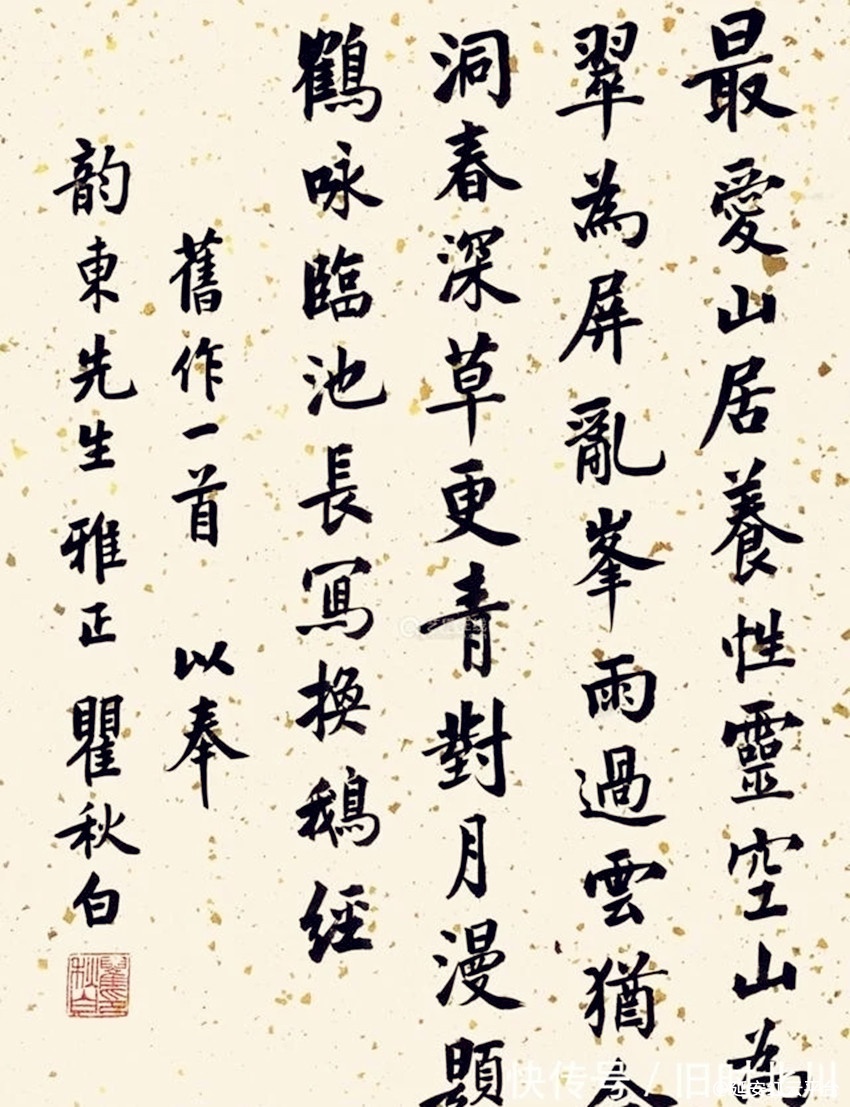 最愛山居養性靈空山為
翠為屏亂峯雨過雲猶含
洞春深草更青對月漫題
鶴咏臨池長寫換鵝經
舊作一首 以奉
韵東先生雅正 瞿秋白
快传号 / 旧